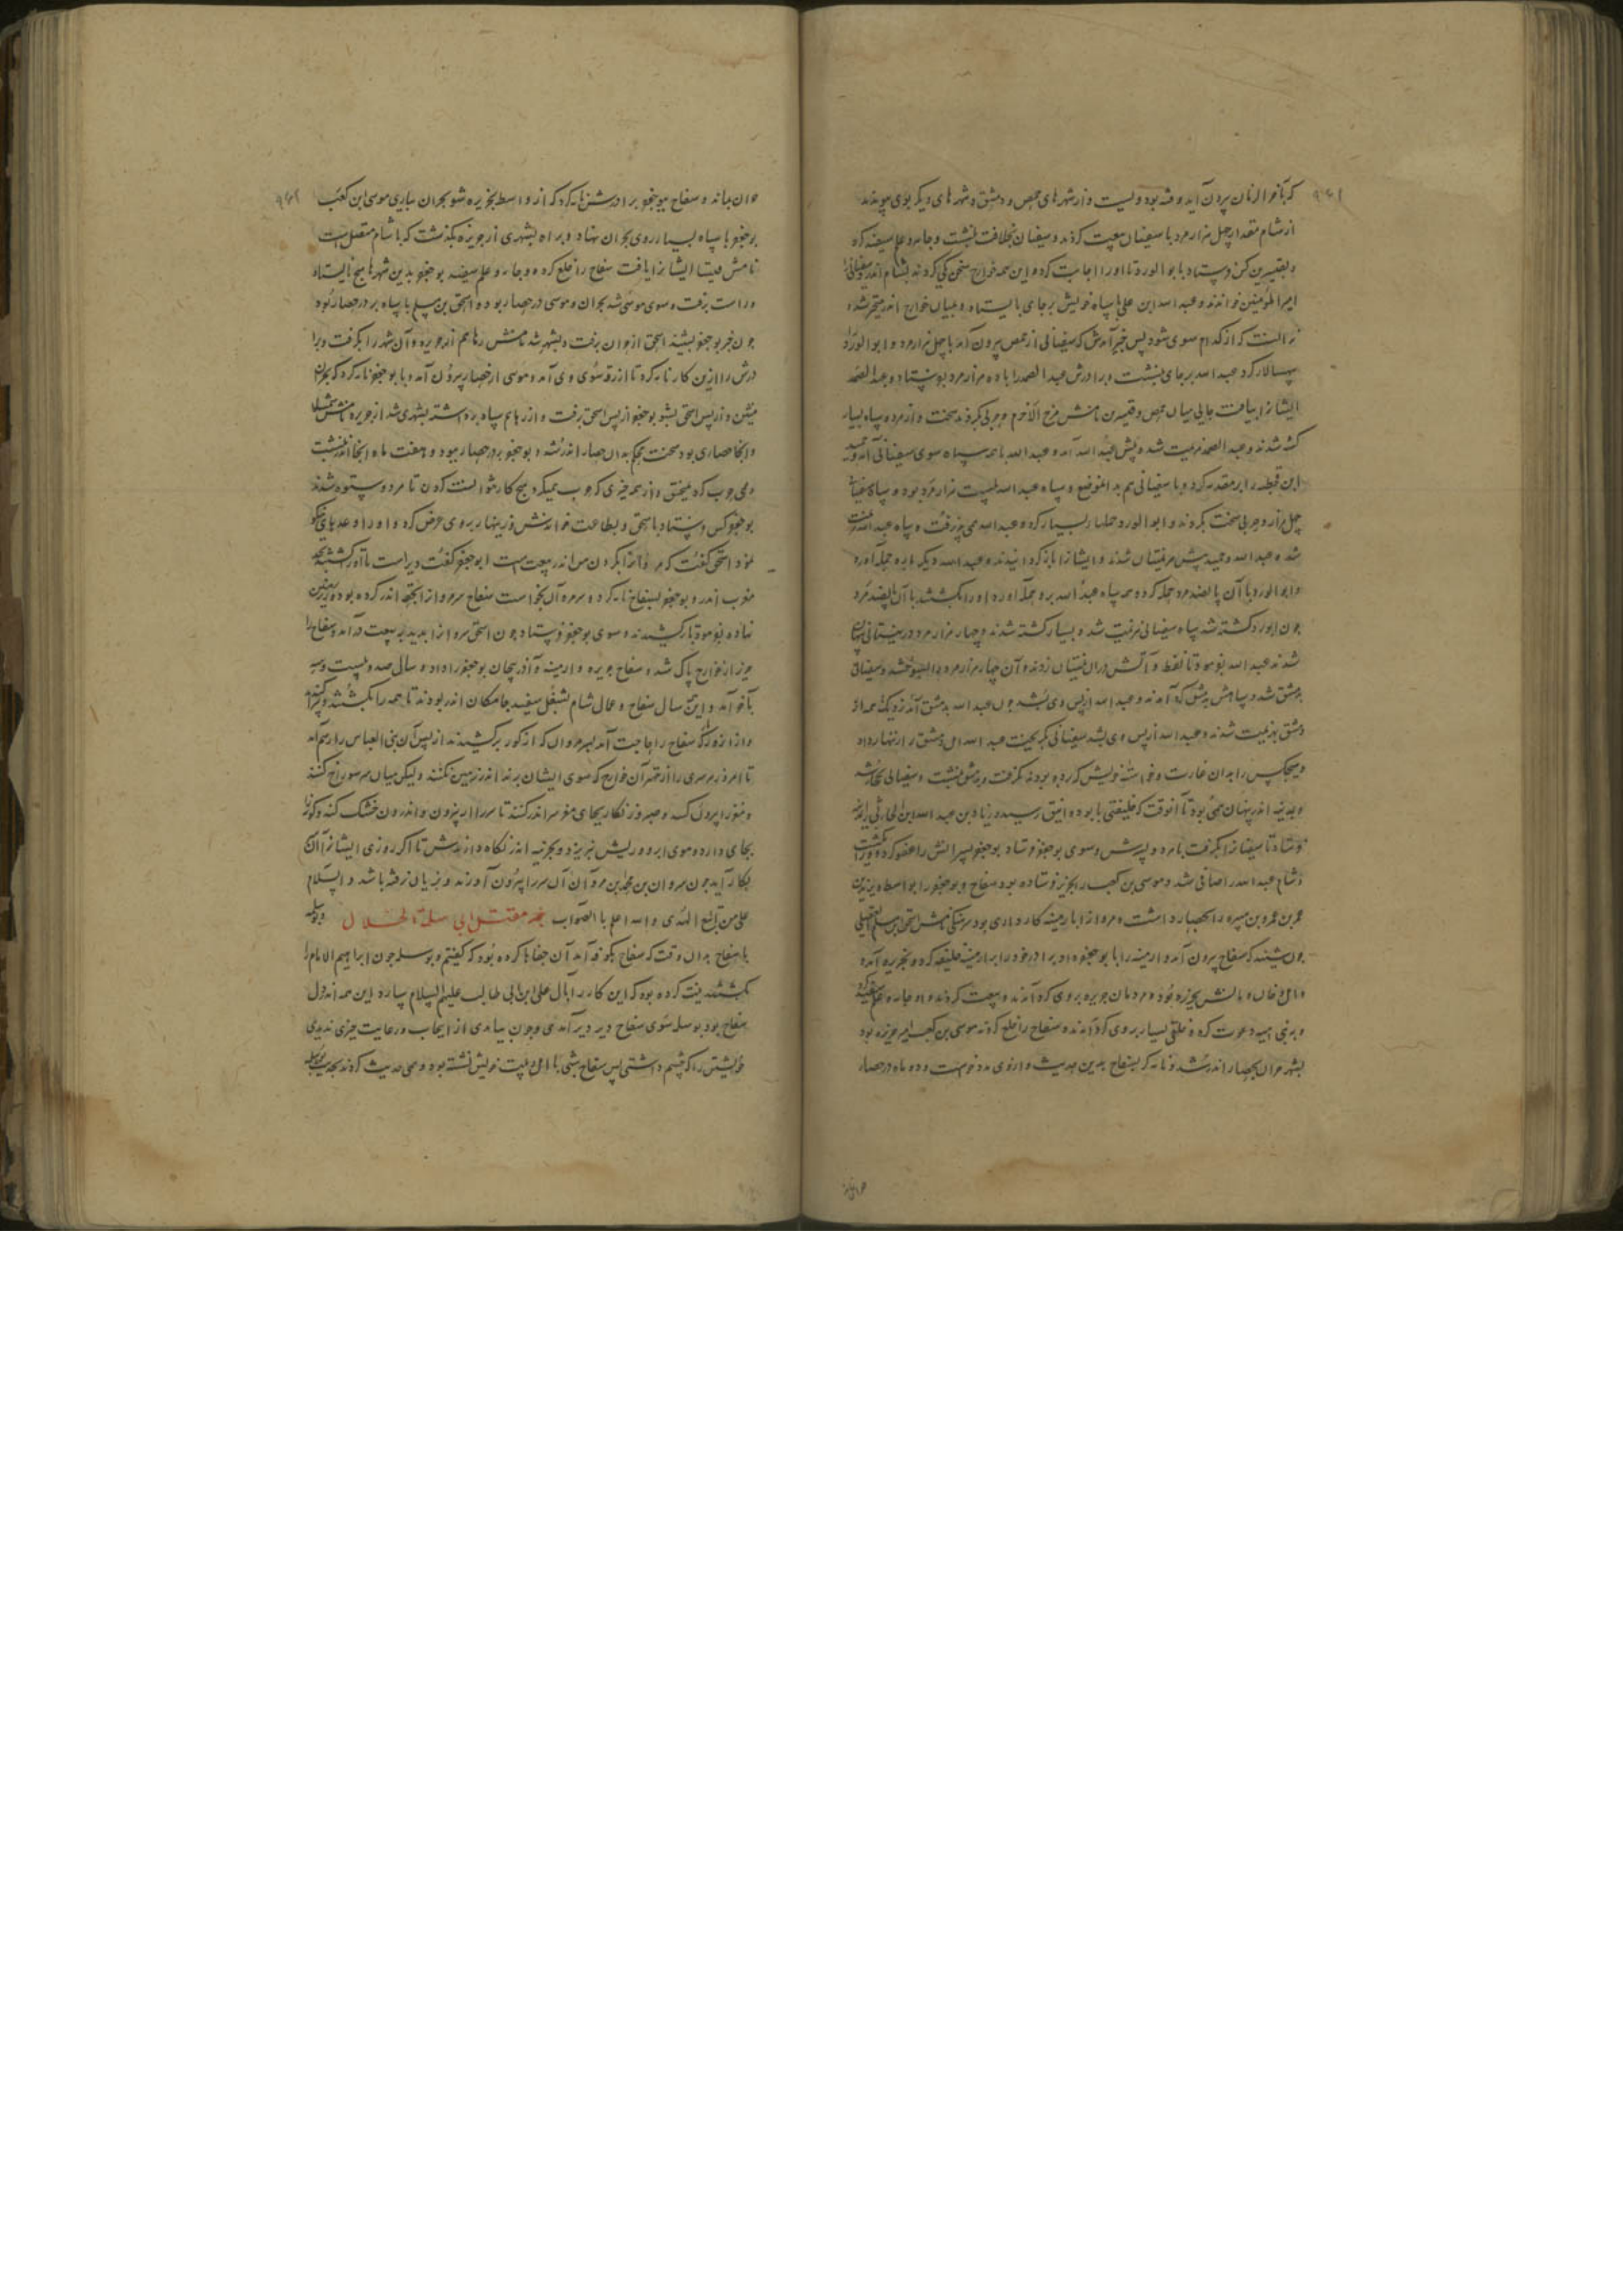 که بآخر الزمان بیرون آید و فتنه بود ولیست و از شهرهای حمص و دمشق و شهرهای دیگر بوی پیوندند
از شام مقدار چهل هزار مرد با سفیان بیعت کردند و سفیان بخلافت بنشست و جامه و علم سفید کرد
و بقنسرین کس فرستاد بابو الورد تا او را اجابت کرد و این همه خوارج سخن یکی کردند بشام اندر و سفیانی را
امیر المؤمنین خواندند و عبد الله ابن علی با سپاه خویش بر جای بایستاد و میان خوارج اندر متحیر شده
ندانست که از کدام سوی شود پس خبر آمدش که سفیانی از حمص بیرون آمد با چهل هزار مرد و ابو الورد را
سپهسالار کرد عبد الله بر جای بنشست و برادرش عبد الصمد را با ده هزار مرد بفرستاد و عبد الصمد
ایشانرا بیافت جایی میان حمص و قنسرین نامش مرج الاخرم و حربی کردند سخت و از هر دو سپاه بسیار
کشته شدند و عبد الصمد هزیمت شد و پیش عبد الله آمد و عبد الله با همه سپاه سوی سفیانی آمد و حمید
ابن قحطبه را بر مقدمه کرد و با سفیانی هم بدان موضع و سپاه عبد الله بیست هزار مرد بود و سپاه سفیانی
چهل هزار و حربی سخت بکردند و ابو الورد حملها بسیار کرد و عبد الله می پذیرفت و سپاه عبد الله هزیمت
شد و عبد الله و حمید پیش هزیمتیان شدند و ایشانرا باز گردانیدند و عبد الله دیگر باره حمله آورد
و ابو الورد با آن پانصد مرد حمله کرد و همه سپاه عبد الله برو حمله آورد و او را بکشتند با آن پانصد مرد
چون ابو الورد کشته شد سپاه سفیانی هزیمت شد و بسیار کشته شدند و چهار هزار مرد در نیستانی پنهان
شدند عبد الله بفرمود تا نفط و آتش در آن نیستان زدند و آن چهار هزار مرد را بسوختند و سفیانی
بدمشق شد و سپاهش بدمشق گرد آمدند و عبد الله از پس وی بشد چون عبد الله بدمشق آمد نزدیک همه از
دمشق بهزیمت شدند و عبد الله از پس وی بشد سفیانی بگریخت عبد الله اهل دمشق را زنهار داد
و هیچکس را بدان غارت و خواسته خویش که برده بودند نگرفت و بدمشق بنشست و سفیانی بحجاز شد
و بمدینه اندر پنهان همی بود تا آنوقت که خلیفتی بابو دوانیق رسید و زیاد بن عبد الله ابن الحارثی را بمدینه
فرستاد تا سفیانرا بگرفت با مرد و پسرش و سوی بوجعفر فرستاد بوجعفر پسرانش را عفو کرد و ورا بکشت
و شام عبد الله را صافی شد و موسی بن کعب را بجزیره فرستاده بود سفاح و بوجعفر را بواسط و یزید بن
عمر بن هبیره را بحصار داشت و مر او را بارمینیه کارداری بود سرهنگی نامش اسحق ابن مسلم العقیلی
چون بشنید که سفاح بیرون آمد و ارمینیه را بابو جعفر داد برادر خود را بر ارمینیه خلیفه کرد و بجزیره آمد
و اهل خان و مانش بجزیره بود و مردمان جزیره بر وی گرد آمدند و بیعت کردند و او جامه و علم سفید کرد
و به بنی امیه دعوت کرد و خلقی بسیار بر وی گرد آمدند و سفاح را خلع کردند موسی بن کعب امیر جزیره بود
بشهر حران بحصار اندر شد و نامه کرد بسفاح بدین حدیث و از وی مدد خواست و دو ماه در حصار
حران بماند و سفاح بوجعفر برادرش نامه کرد که از واسط بجزیره شو بحران بیاری موسی ابن کعب
بوجعفر با سپاه بسیار روی بحران نهاد و براه بشهری از جزیره بگذشت که با شام متصل است
نامش ایشانرا یافت سفاح را خلع کرده و جامه و علم سفید بوجعفر بدین شهرها هیچ نایستاد
و راست برفت و سوی موسی شد بحران و موسی در حصار بود و اسحق بن مسلم با سپاه بر در حصار بود
چون خبر بوجعفر بشنید اسحق از حران برفت و بشهر شد نامش رها هم اندر جزیره و آن شهر را بگرفت و برا
درش را ازین کار نامه کرد تا از رقه سوی وی آمد و موسی از حصار بیرون آمد و با بوجعفر نامه کرد که بحران
منشین و از پس اسحق بشو بوجعفر از پس اسحق برفت و از رها هم سپاه برداشته بشهری شد از جزیره نامش شمشاط
و آنجا حصاری بود سخت محکم بدان حصار اندر شد و بوجعفر بر در حصار ببود و هفت ماه آنجا اندر نشست
و همی حرب کرد و منجنیق و از همه چیزی که حرب همیکرد هیچ کار نتوانست کردن تا مردم ستوه شدند
بوجعفر کس فرستاد باسحق و بطاعت خواندش و زینهار بر وی عرض کرد و او را وعدهای نیکو
نمود اسحق گفت که مروانرا بگردن من اندر بیعت است ابوجعفر گفت دیر است تا او کشته شد
مغرب اندر و بوجعفر بسفاح نامه کرد و سر مروان بخواست سفاح سر مروانرا بتخته اندر کرده بود و بزمین
نهاده بفرمود تا برکشیدند و سوی بوجعفر فرستاد چون اسحق سر مروانرا بدید به بیعت درآمد و سفاح را
جزیره از خوارج پاک شد و سفاح جزیره و ارمینیه و آذربیجان بوجعفر را داد و سال صد و بیست و سه
بآخر آمد و این سال سفاح و عمال شام بشغل سفید جامگان اندر بودند تا همه را بکشتند و پراکنده
و از آنروز که سفاح را حاجت آمد بسر مروان که از گور برکشیدند از پس آن بنی العباس را رسم آمد
تا امروز هر سری را از مهتران خوارج که سوی ایشان برند اندر زمین نکنند ولیکن میان سر سوراخ کنند
و مغز را بیرون کنند و صبر و زنگار بجای مغز سر اندر کنند تا سر را از بیرون و اندرون خشک کند و گونه
بجای دارد و موی ابرو و ریش نریزد و بخزینه اندر نگاه دارندش تا اگر روزی ایشانرا آن
بکار آید چون مروان بن محمد بن مروان آن سر را بیرون آورند و بزیان نرفته باشد و السلام
علی من اتبع الهدی و الله اعلم بالصواب خبر مقتل ابی سلمة الخلال و بوسلمه
با سفاح بدان وقت که سفاح بکوفه آمد آن جفاها کرده بود که گفتیم و بوسلمه چون ابراهیم الامام را
بکشتند نیت کرده بود که این کار را بآل علی ابن ابی طالب علیهم السلام سپارد این همه اندر دل
سفاح بود بوسلمه سوی سفاح دیر دیر آمدی و چون بیامدی از ایجاب و رعایت چیزی ندیدی
خویشتن را که چشم داشتی پس سفاح شبی با اهل بیت خویش نشسته بود و همی حدیث کردند بحدیث بوسلمه